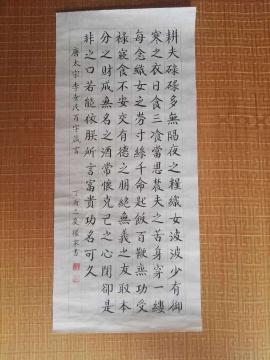 耕夫碌碌多無隔夜之糧織女波波少有御
寒之衣日食三飡當思農夫之苦身穿一縷
每念織女之勞寸絲千命匙飯百鞭無功受
祿寢食不安交有德之朋絕無義之友取本
分之財戒無名之酒常懷克己之心閉卻是
非之口若能依朕所言富貴功名可久
唐太宗李世民百字箴言 丁酉之夏 書